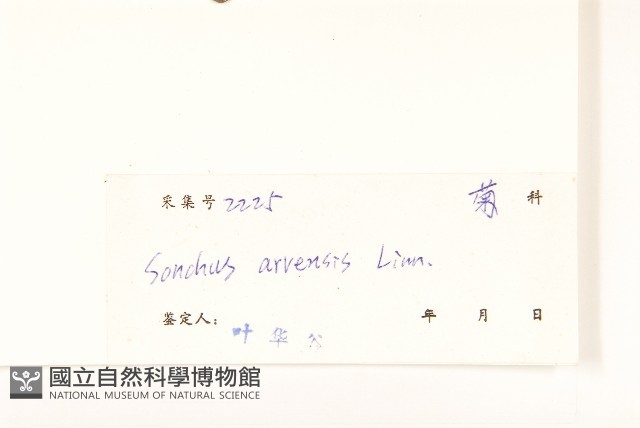 采集号 2225 菊 科
Sonchus arvensis Linn.
鉴定人： 叶 华 年 月 日
國立自然科學博物館
NATIONAL MUSEUM OF NATURAL SCIENCE